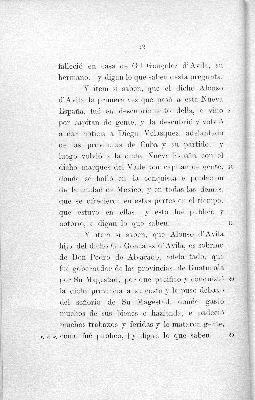 12
falleció en casa de Gil Gonçalez d'Avila, su
hermano, y digan lo que saben desta pregunta.
Y item si saben, que el dicho Alonso
d'Avila la primera vez que pasó a esta Nueva
España, fué en descubrimiento della, e vino
por capitan de gente, y la descubrió y volvió
a dar noticia a Diego Velasquez, adelantado
de las provincias de Cuba y su partido, y
luego volvió a la dicha Nueva España con el
dicho marques del Valle por capitan de gente,
donde se halló en la conquista e poblacion
de la ciudad de Mexico, y en todas las demas,
que se ofrecieron en estas partes en el tiempo,
que estuvo en ellas y esto fué publico y
notorio, e digan lo que saben.
Y item si saben, que Alonso d'Avila
hijo del dicho Gil Gonzalez d'Avila, es sobrino
de Don Pedro de Alvarado, adelantado, que
fué gobernador de las provincias de Guatemala
por Su Magestad, que pacifico y conquistó
la dicha provincia a su costa y la puso debaxo
del señorio de Su Magestad, donde gastó
muchos de sus bienes e hazienda, e padeció
muchos trabaxos y feridas y le mataron gente,
como fué publico, y digan lo que saben.